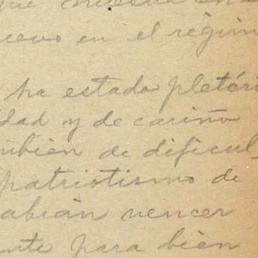 que nuestra en
uevo en el régim
ha estado pletóri
dad y de cariño
mbién de dificul
patriotismo de
abián vencer
nte para bien